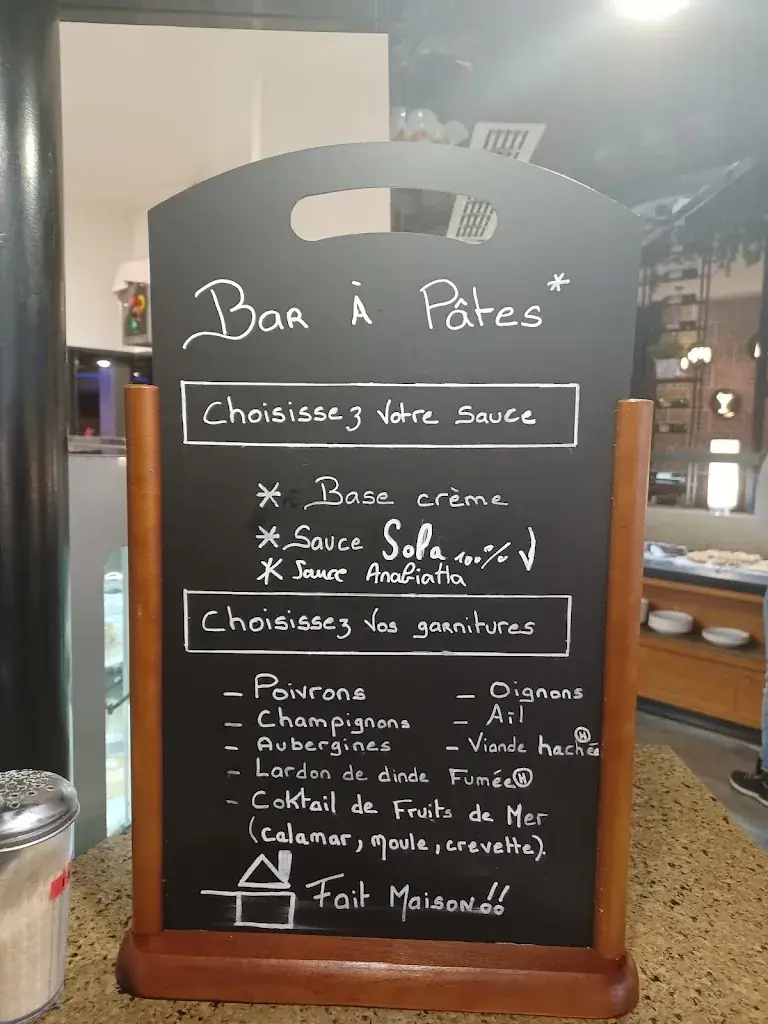 Bar À Pâtes*
Choisissez Votre Sauce
* Base crème
* Sauce Sola 100% √
* Sauce Anabiatta
Choisissez Vos garnitures
- Poivrons - Oignons
- Champignons - Ail
- Aubergines - Viande hachée Ⓗ
- Lardon de dinde Fumée Ⓗ
- Coktail de Fruits de Mer
(calamar, moule, crevette).
Fait Maison!!